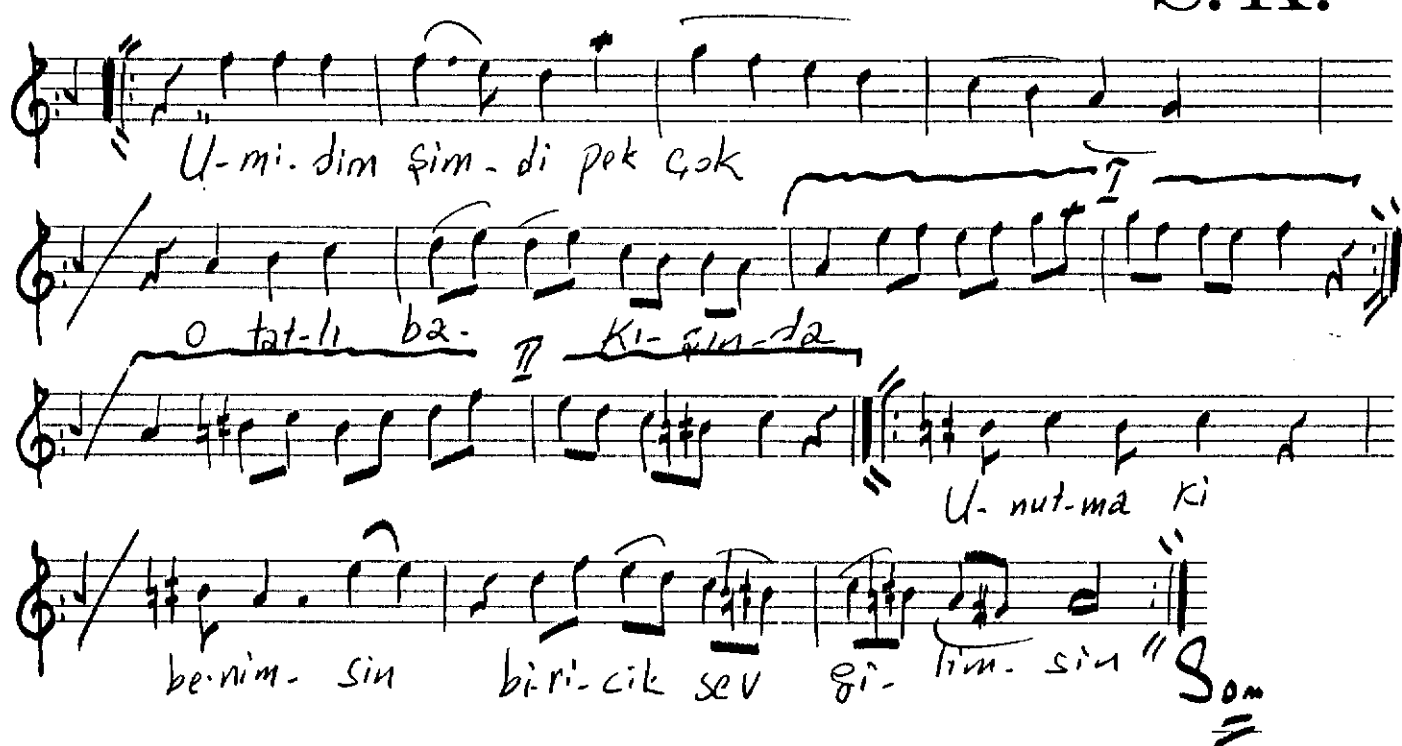 S. K.
U-mi-dim şim-di pek çok
I
O tat-lı ba- kı-şın-da
II
U-nut-ma ki
be-nim-sin bi-ri-cik sev gi-lim-sin" Son